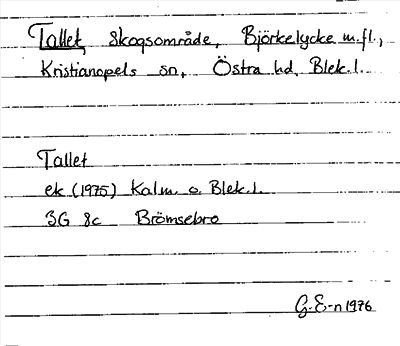 Tallet, Skogsområde, Björkelycke m.fl.,
Kristianopels sn, Östra hd, Blek.l.
Tallet
ek (1975) Kalm. o. Blek.l.
3G 8c Brömsebro
G.E-n 1976